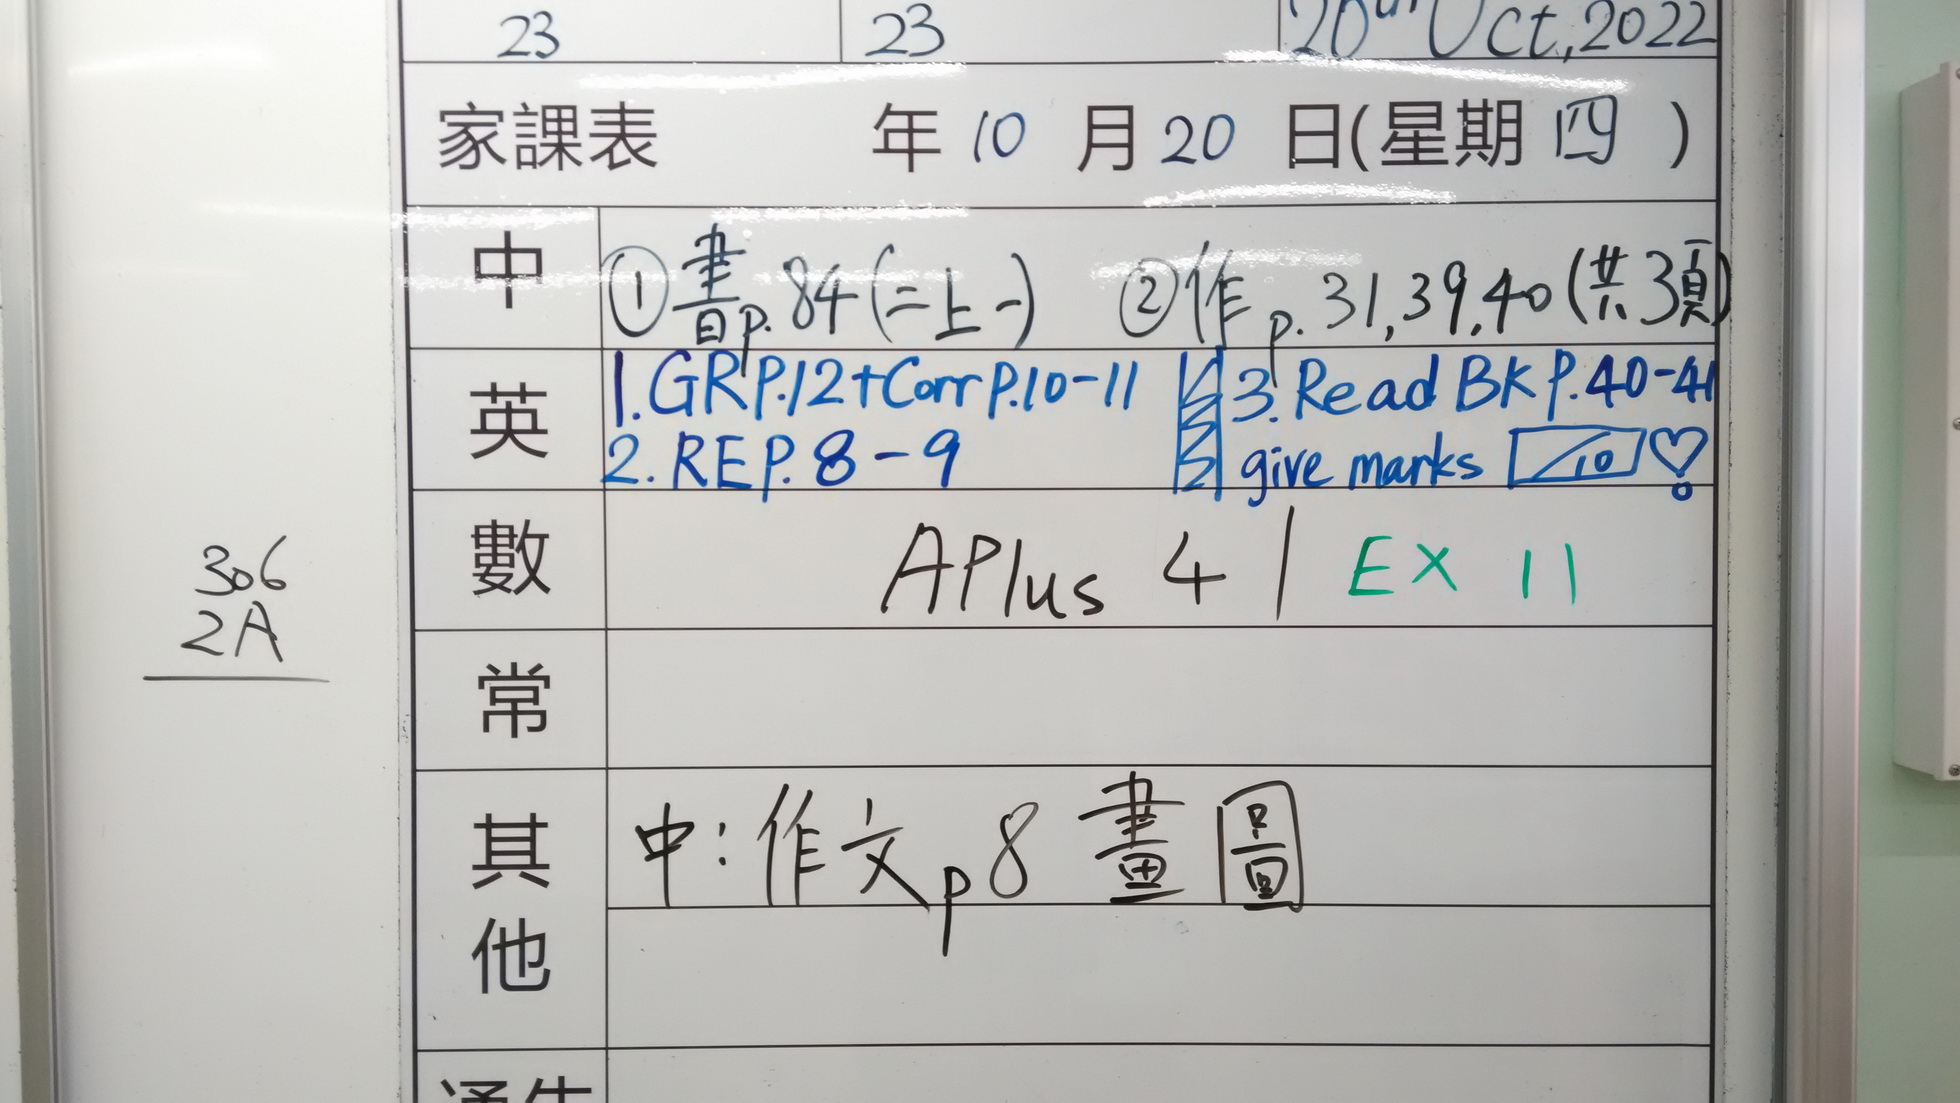 23 23 20th Oct, 2022
家課表 年 10 月 20 日(星期 四 )
中 ①書p.84(二上一) ②作p.31,39,40(共3頁)
英 1.GRP.12+Corr P.10-11 3. Read BK P.40-41
2. REP. 8-9 give marks /10
數 APlus 4 / EX 11
306
2A
常
其他 中:作文p8 畫圖
通告